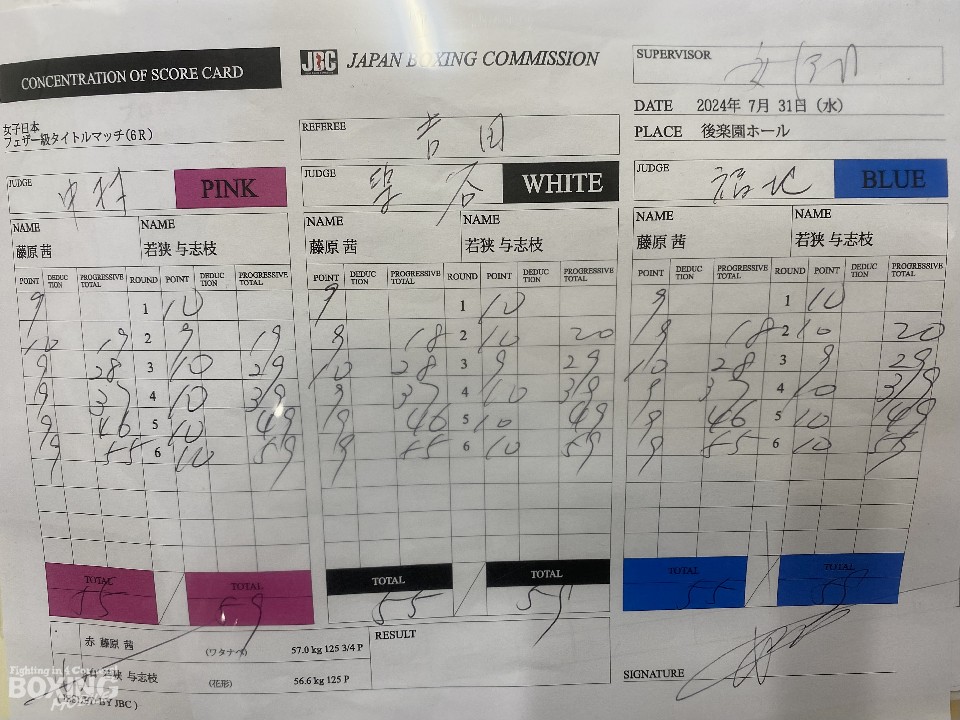 CONCENTRATION OF SCORE CARD
JBC JAPAN BOXING COMMISSION
SUPERVISOR
女子日本
フェザー級タイトルマッチ(6R)
REFEREE 吉田
DATE 2024年 7月 31日 (水)
PLACE 後楽園ホール
JUDGE 中村 PINK
JUDGE WHITE
JUDGE 福地 BLUE
NAME NAME NAME NAME NAME NAME
藤原 茜 若狭 与志枝 藤原 茜 若狭 与志枝 藤原 茜 若狭 与志枝
POINT DEDUCTION PROGRESSIVE TOTAL ROUND POINT DEDUCTION PROGRESSIVE TOTAL POINT DEDUCTION PROGRESSIVE TOTAL ROUND POINT DEDUCTION PROGRESSIVE TOTAL POINT DEDUCTION PROGRESSIVE TOTAL ROUND POINT DEDUCTION PROGRESSIVE TOTAL
9 1 10 9 1 10 9 1 10
10 19 2 9 19 9 18 2 10 20 9 18 2 10 20
9 28 3 10 29 10 28 3 9 29 10 28 3 9 29
9 37 4 10 39 9 37 4 10 39 9 37 4 10 39
9 46 5 10 49 9 46 5 10 49 9 46 5 10 49
9 55 6 10 59 9 55 6 10 59 9 55 6 10 59
TOTAL TOTAL TOTAL TOTAL TOTAL TOTAL
55 59 55 59 55 59
赤 藤原 茜 (ワタナベ) 57.0 kg 125 3/4 P
RESULT
若狭 与志枝 (花形) 56.6 kg 125 P
SIGNATURE
BY JBC )
Fighting in 4 Cornered
BOXING